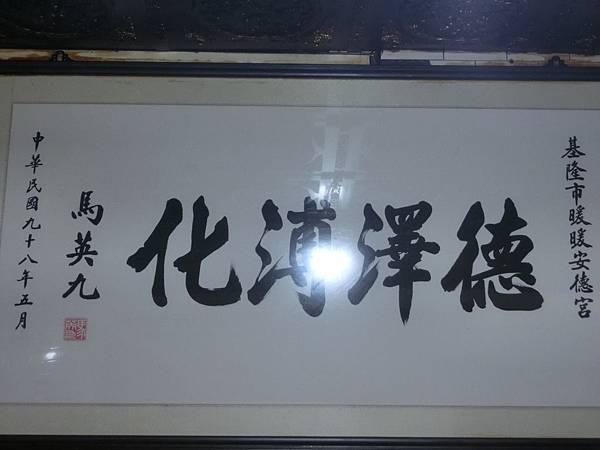 基隆市暖暖安德宮
德澤溥化
馬英九
中華民國九十八年五月